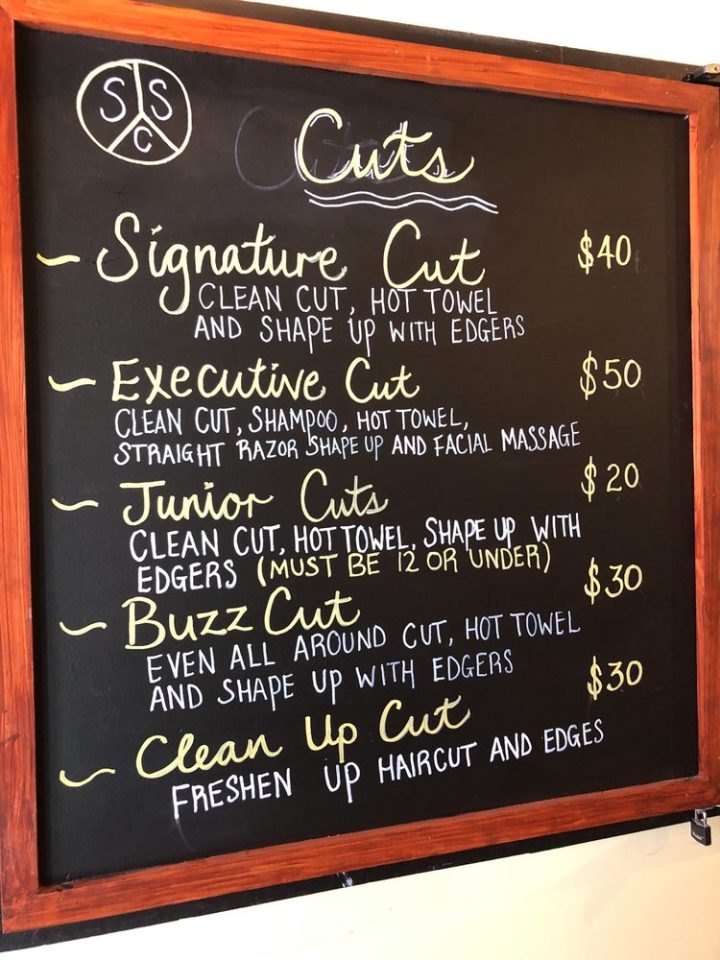 S S
C
Cuts
~ Signature Cut $40
CLEAN CUT, HOT TOWEL
AND SHAPE UP WITH EDGERS
~ Executive Cut $50
CLEAN CUT, SHAMPOO, HOT TOWEL,
STRAIGHT RAZOR SHAPE UP AND FACIAL MASSAGE
~ Junior Cuts $20
CLEAN CUT, HOT TOWEL, SHAPE UP WITH
EDGERS (MUST BE 12 OR UNDER)
~ Buzz Cut $30
EVEN ALL AROUND CUT, HOT TOWEL
AND SHAPE UP WITH EDGERS
~ Clean Up Cut $30
FRESHEN UP HAIRCUT AND EDGES